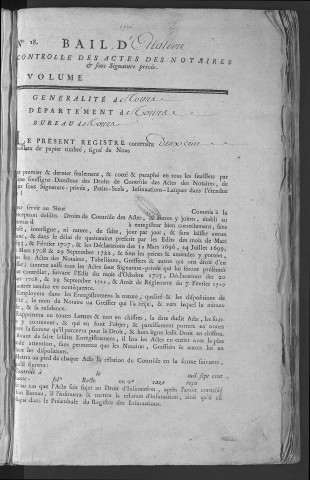 N° 18.
BAIL D'
CONTROLLE DES ACTES DES NOTAIRES
& sous Signature privée.
VOLUME
GENERALITÉ d
DÉPARTEMENT d
BUREAU de
LE PRÉSENT REGISTRE contenant Deux cent
feuillets de papier timbré, signé de Nous
par premier & dernier feuillet seulement, & cotté & paraphé en tous ses feuillets par
soussigné Directeur des Droits de Contrôle des Actes des Notaires, de
sous Signature-privée, Petits-Scels, Insinuations-Laïques dans l'étendue
Pour servir au Sieur Commis à la
desdits Droits de Contrôle des Actes, & autres y joints, établi au
à enregistrer bien correctement, sans
interligne, ni rature, de suite, jour par jour, & sans laisser aucun
& dans le délai de quatorzaine prescrit par les Edits des mois de Mars
1693, & Février 1707, & les Déclarations des 19 Mars 1696, 14 Juillet 1699,
Mars 1708 & 29 Septembre 1722, & sous les peines & amendes y portées,
les Actes des Notaires, Tabellions, Greffiers & autres qui ont droit d'en
comme aussi tous les Actes sous Signature-privée qui lui feront présentés
Contrôler, suivant l'Edit du mois d'Octobre 1705, Déclarations des 20
1708, & 29 Septembre 1722, & Arrêt de Réglement du 7 Février 1719
autres rendus en conséquence.
Employera dans les Enregistrements la nature, qualité, & les dispositions de
le nom du Notaire ou Greffier qui l'a reçu, & vers lequel la minute
& sa résidence.
Rapportera en toutes Lettres & non en chiffres, la date des Actes, les sommes
y contenues, & qui en sont l'objet; & pareillement portera en toutes
la somme qu'il percevra pour le Droit, & hors ligne ledit Droit en chiffres.
avant de faire lesdits Enregistrements, il lira les Actes en entier avec la plus
attention, sans permettre que les Notaires, Greffiers & autres lui en
les dispositions.
Mettra au pied de chaque Acte la relation de Contrôle en la forme suivante,
signera:
Contrôlé à le mil sept cent
fol° Recto ou v° case reçu
au cas que l'Acte soit sujet au Droit d'Insinuation, après l'avoir contrôlé
son Bureau, il l'insinuera & mettra la relation d'Insinuation, ainsi qu'il est
dans le Préambule du Registre des Insinuations.